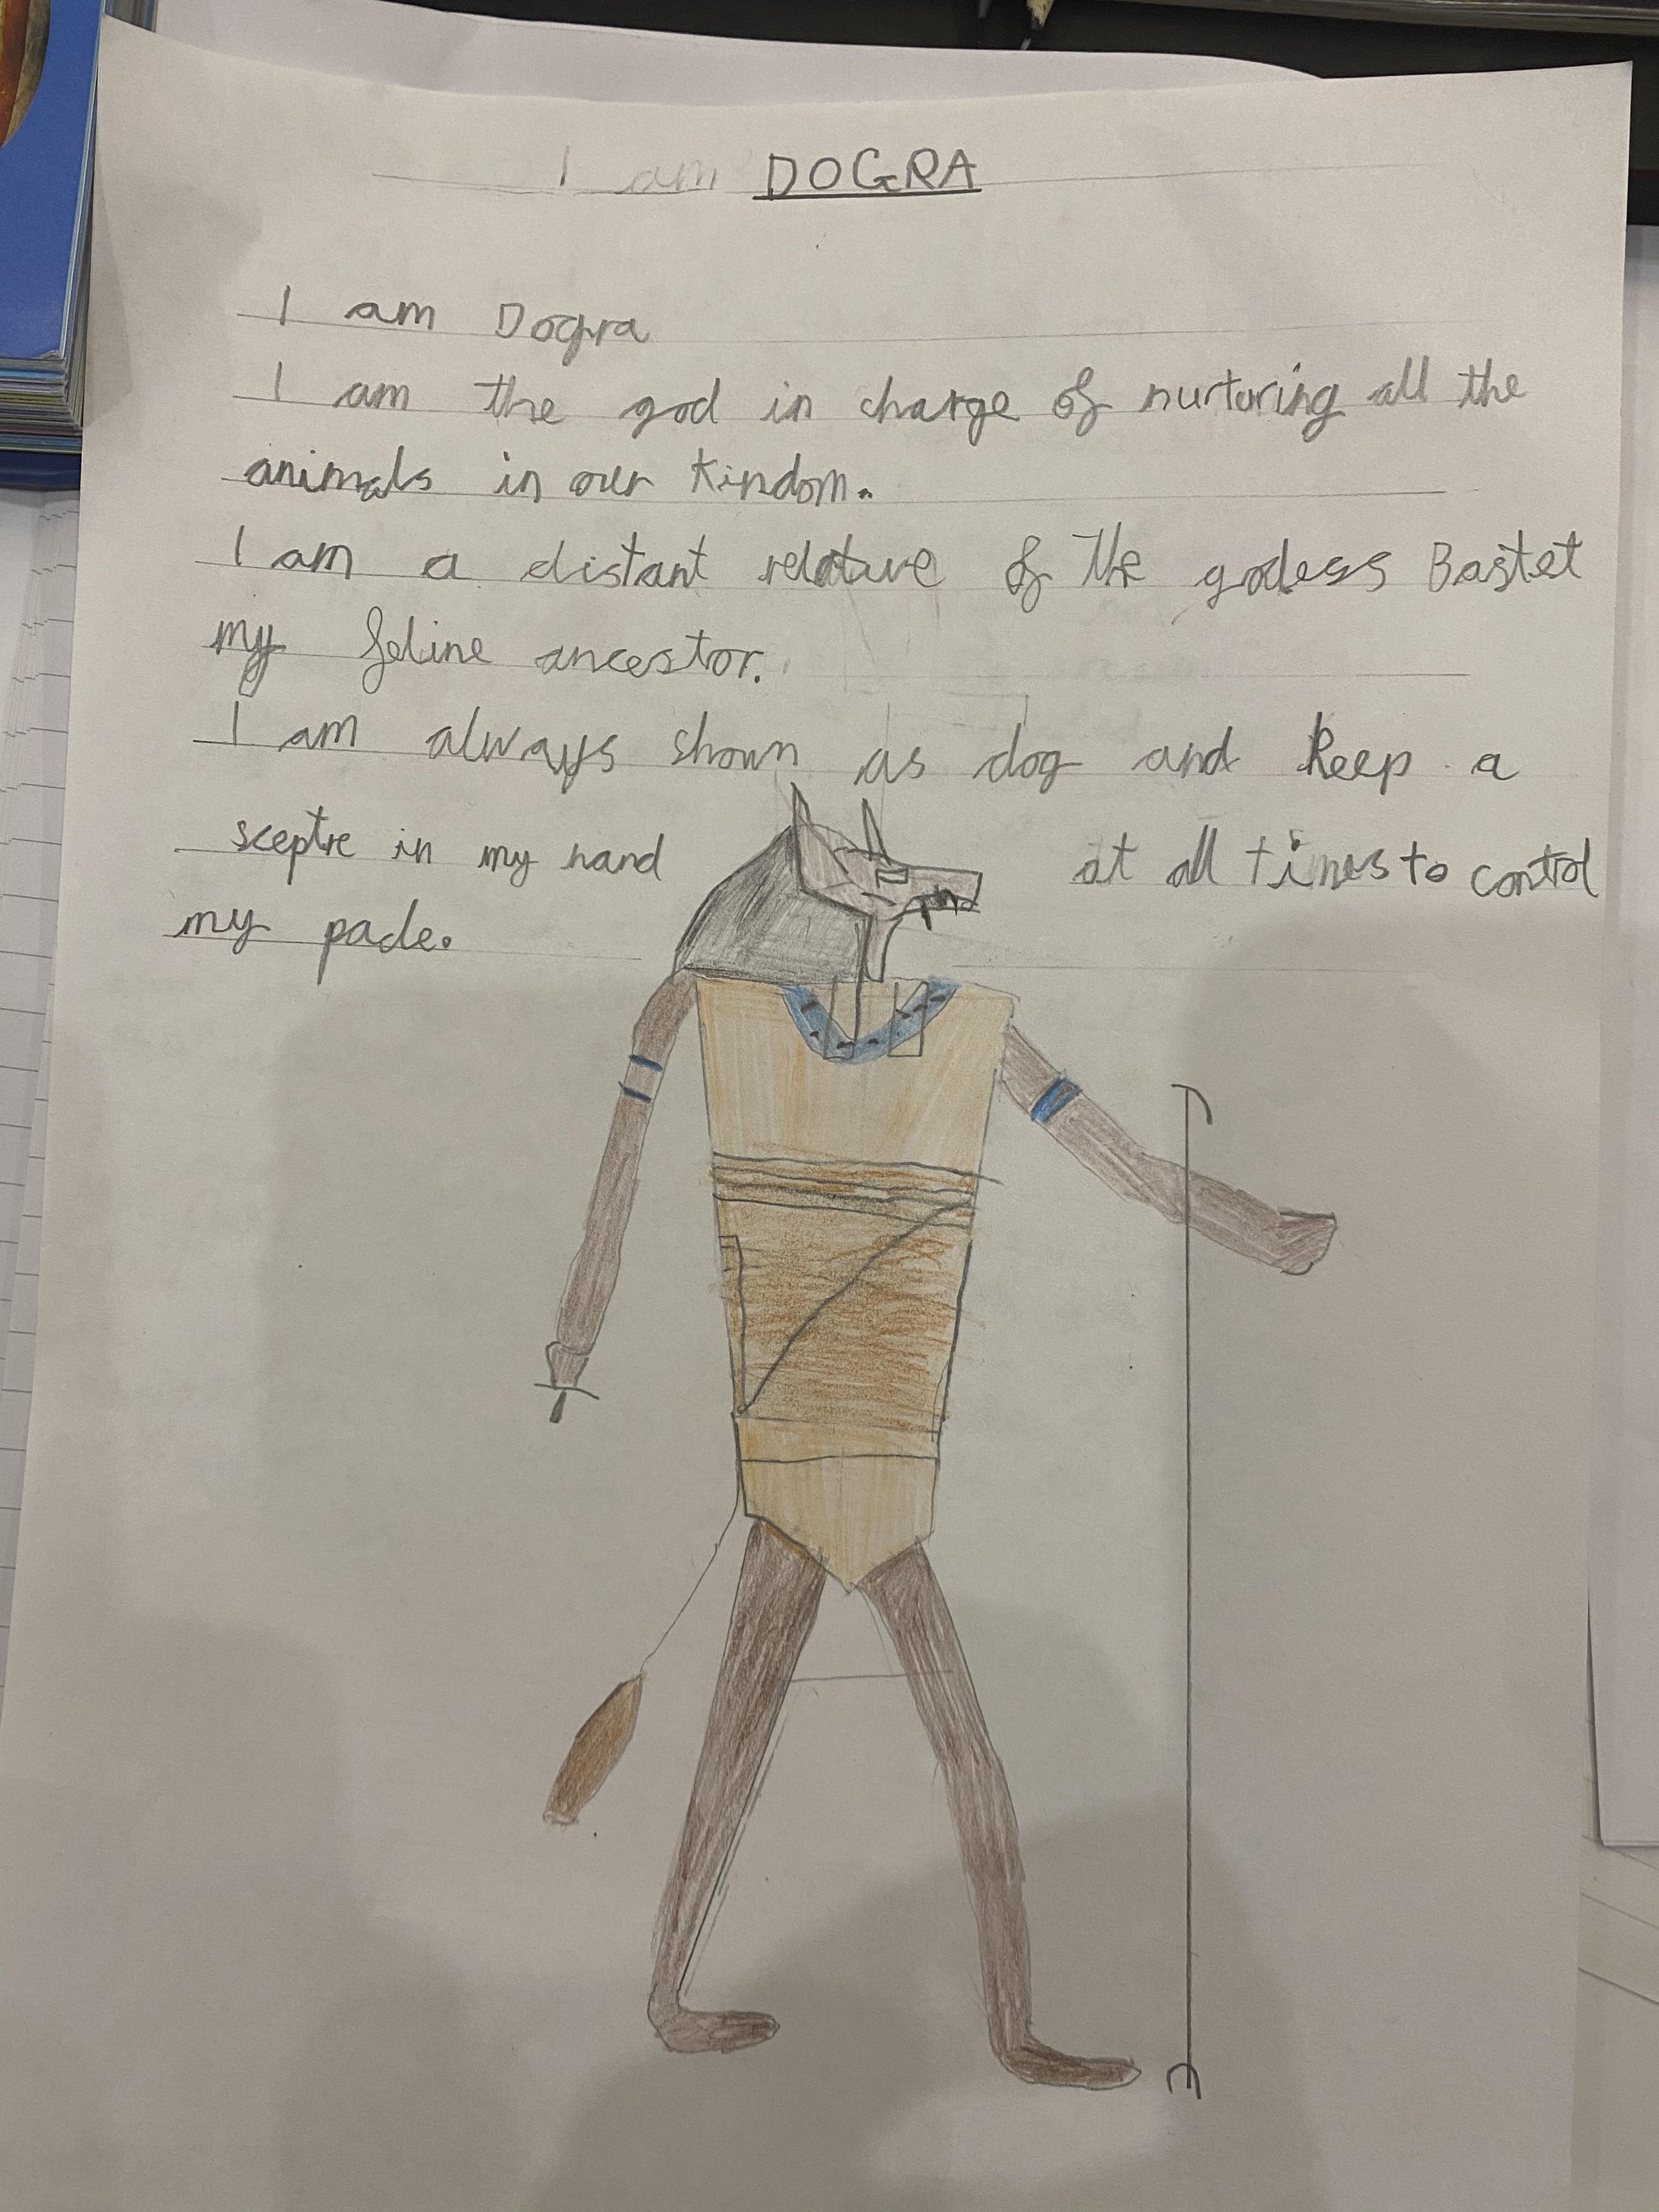 I am DOGRA
I am Dogra
I am the god in charge of nurturing all the
animals in our Kindom.
I am a distant relative of the godess Bastet
my feline ancestor.
I am always shown as dog and keep a
sceptre in my hand at all times to control
my pade.